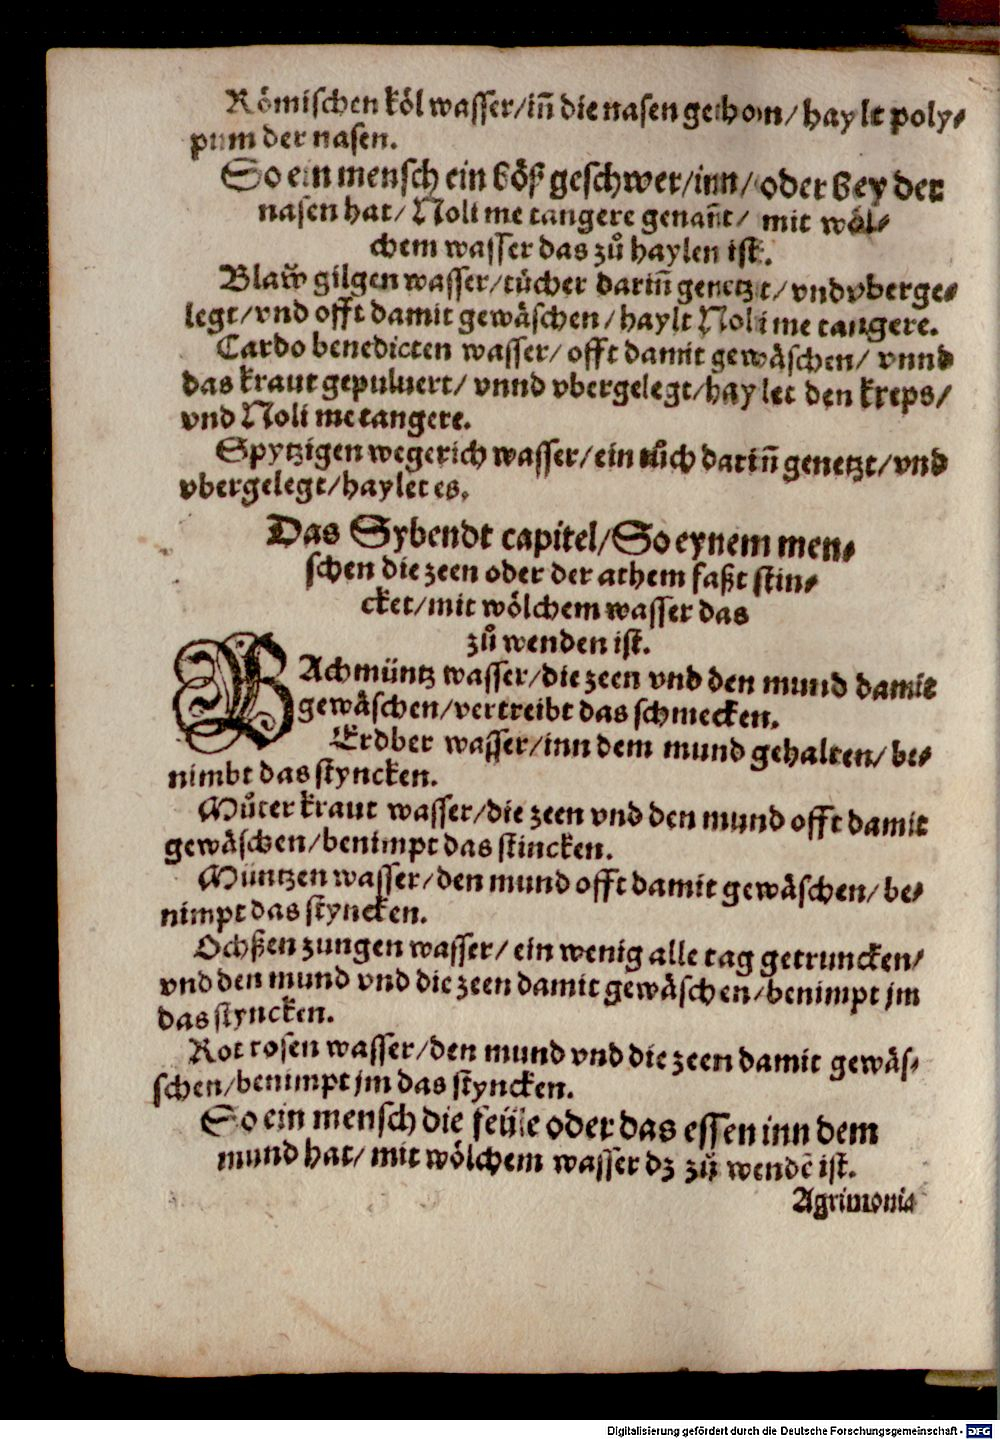 Römischen köl wasser/iñ die nasen gethon/haylt poly⸗
pum der nasen.
So ein mensch ein böß geschwer/inn/oder bey der
nasen hat/Noli me tangere genañt/ mit wöl⸗
chem wasser das zů haylen ist.
Blaw gilgen wasser/tücher dariñ genetzt/vnd vberge⸗
legt/vnd offt damit gewäschen/haylt Noli me tangere.
Cardo benedicten wasser/offt damit gewäschen/ vnnd
das kraut gepuluert/ vnnd vbergelegt/haylet den kreps/
vnd Noli me tangere.
Spytzigen wegerich wasser/ein tůch dariñ genetzt/vnd
vbergelegt/haylet es.
Das Sybendt capitel/So eynem men⸗
schen die zeen oder der athem faßt stin⸗
cket/mit wölchem wasser das
zů wenden ist.
BAchmüntz wasser/die zeen vnd den mund damit
gewäschen/vertreibt das schmecken.
Erdber wasser/inn dem mund gehalten/be⸗
nimbt das styncken.
Můter kraut wasser/die zeen vnd den mund offt damit
gewäschen/benimpt das stincken.
Müntzen wasser/den mund offt damit gewäschen/be⸗
nimpt das styncken.
Ochßen zungen wasser/ein wenig alle tag getruncken/
vnd den mund vnd die zeen damit gewäschen/benimpt jm
das styncken.
Rot rosen wasser/den mund vnd die zeen damit gewäs⸗
schen/benimpt jm das styncken.
So ein mensch die feüle oder das essen inn dem
mund hat/mit wölchem wasser dz zů wendē ist.
Agrimonia
Digitalisierung gefördert durch die Deutsche Forschungsgemeinschaft - DFG